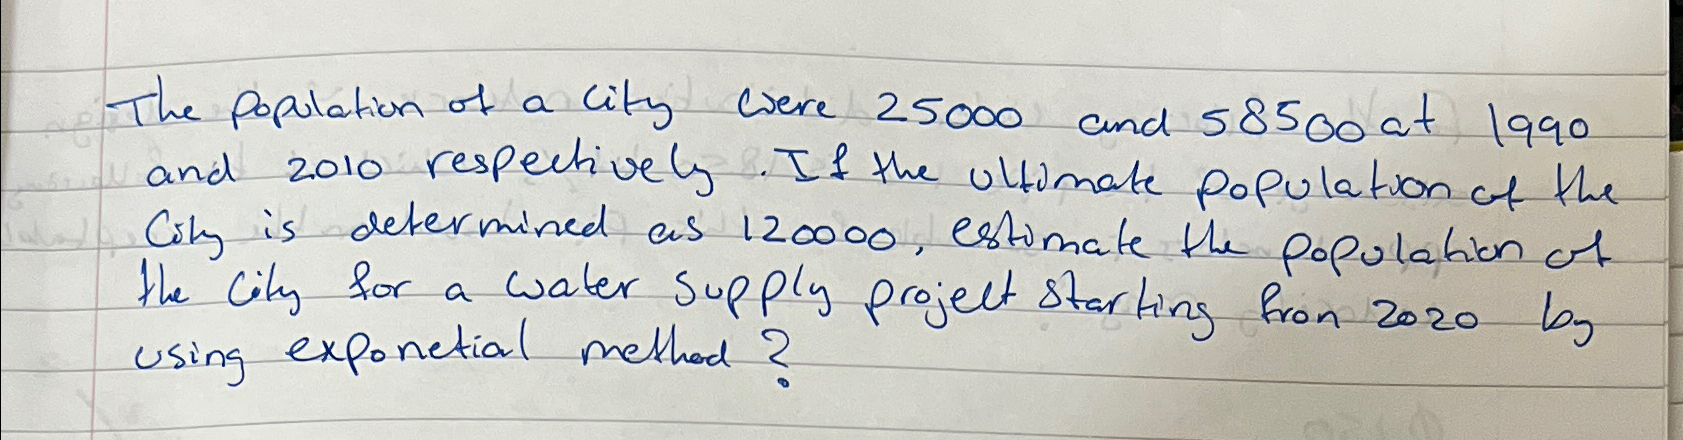 The population of a city were 25000 and 58500 at 1990
and 2010 respectively. If the ultimate population of the
City is determined as 120000, estimate the population of
the city for a water supply project starting from 2020 by
using exponetial method?